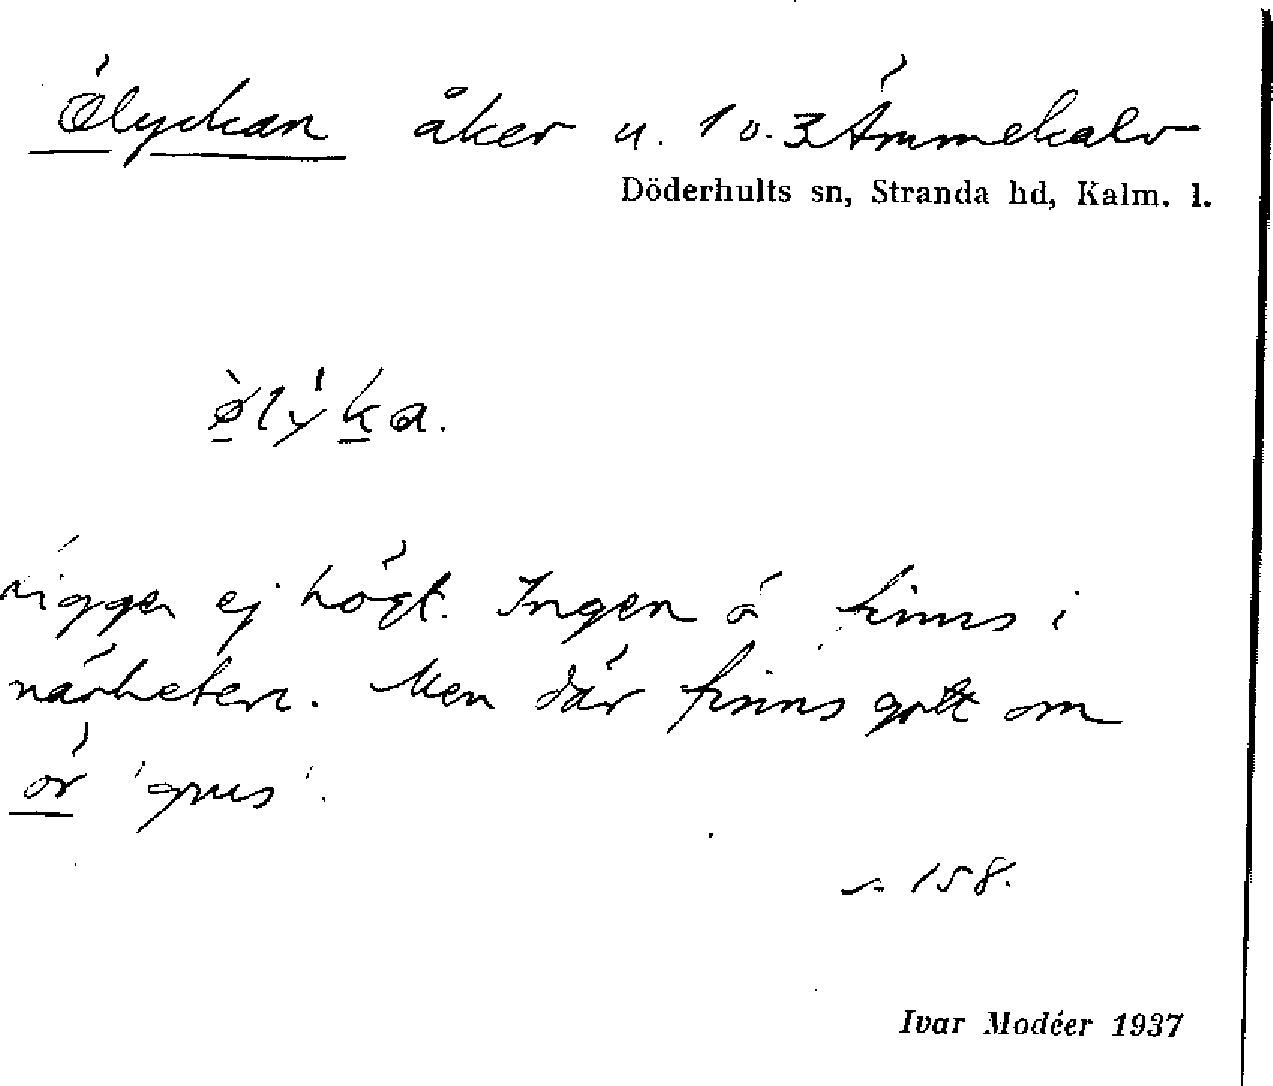 Ölyckan åker u. 1 o. 3 Ämmekalv
Döderhults sn, Stranda hd, Kalm. l.
ø̀lýka.
Ligger ej högt. Ingen ö finns i
närheten. Men där finns gott om
ör 'grus'.
s. 158.
Ivar Modéer 1937